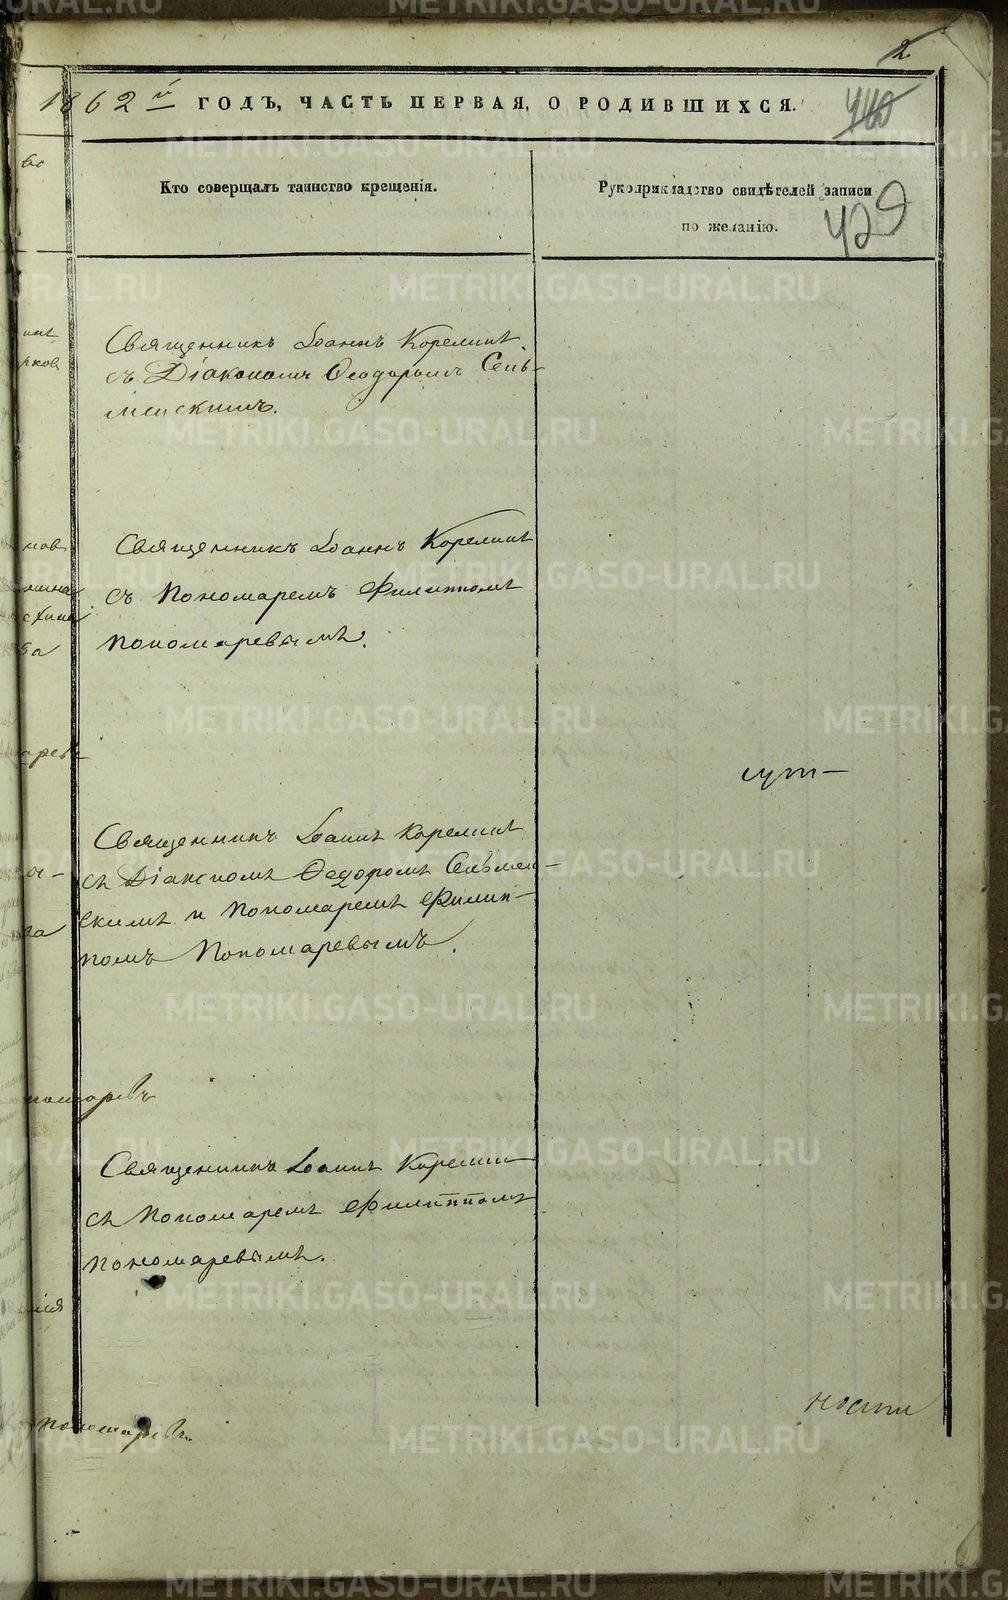 2
1862й ГОДЪ, ЧАСТЬ ПЕРВАЯ, О РОДИВШИХСЯ.
440
Кто совершалъ таинство крещенія.
Рукоприкладство свидѣтелей записи
по желанію.
429
Священникъ Іоаннъ Корелинъ
съ Діакономъ Ѳеодоромъ Сель-
менскимъ.
Священникъ Іоаннъ Корелинъ
съ Пономаремъ Филиппомъ
Пономаревымъ.
Священникъ Іоаннъ Корелинъ
съ Діакономъ Ѳедоромъ Сельмен-
скимъ и Пономаремъ Филип-
помъ Пономаревымъ.
Священникъ Іоаннъ Корелинъ
съ Пономаремъ Филиппомъ
Пономаревымъ.
ности
METRIKI.GASO-URAL.RU